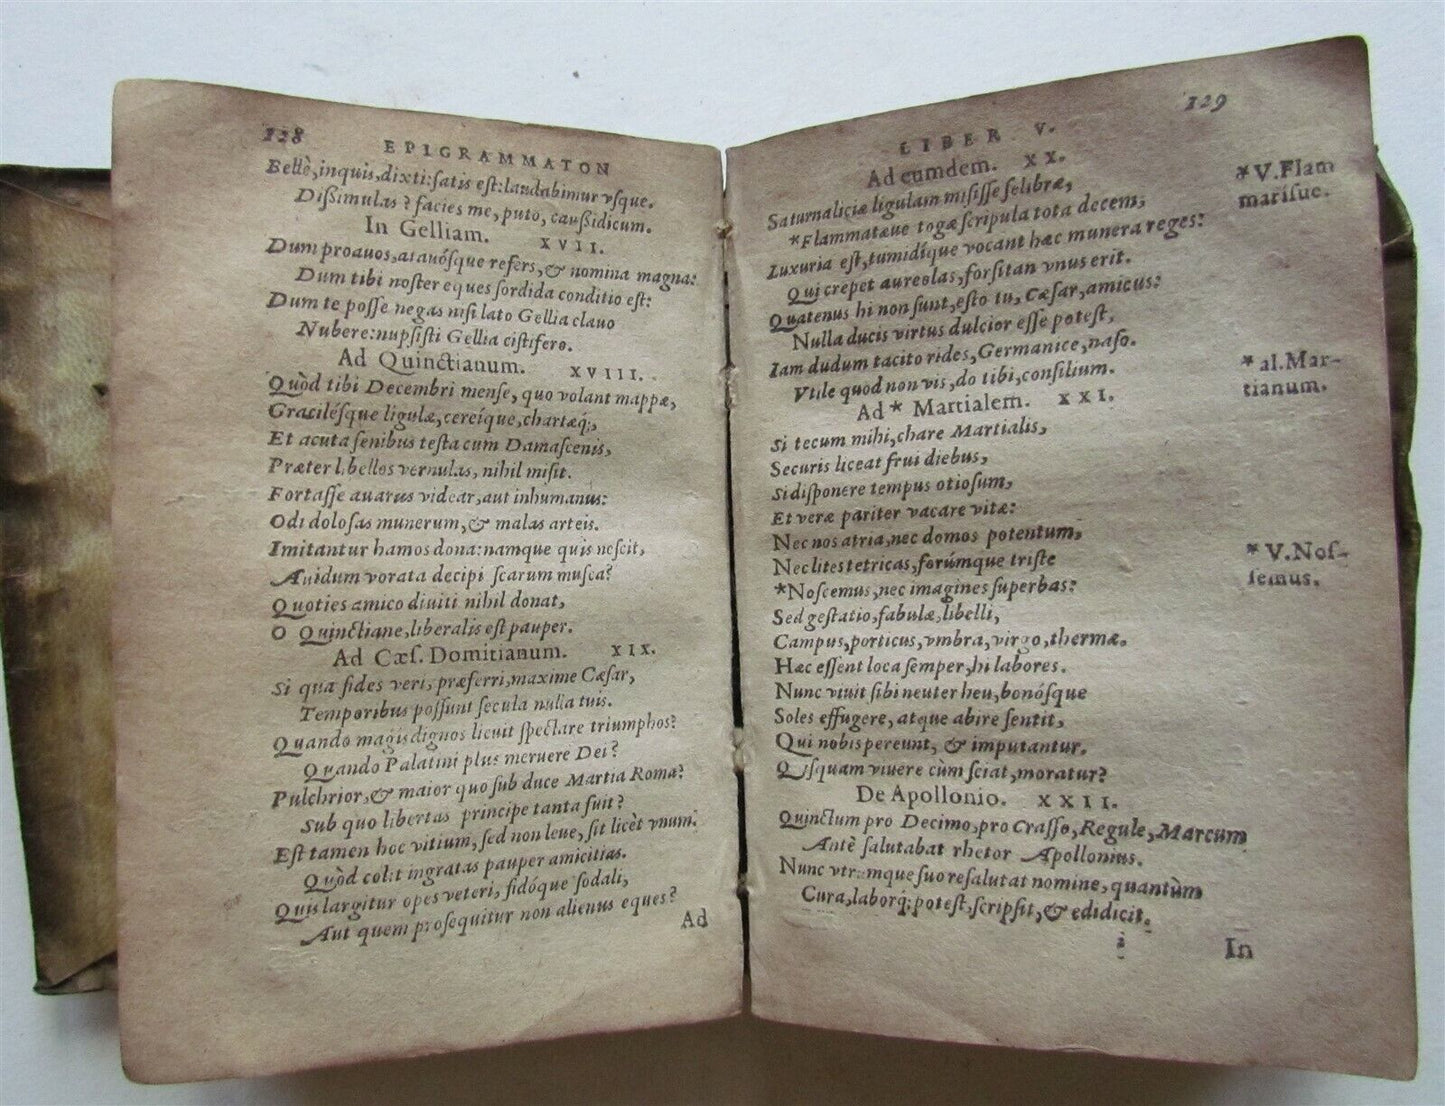 128
EPIGRAMMATON
Bellè, inquis, dixti: satis est: laudabimur vsque.
Dißimulas? facies me, puto, caußidicum.
In Gelliam. XVII.
Dum proauos, atauósque refers, & nomina magna:
Dum tibi noster eques sordida conditio est:
Dum te posse negas nisi lato Gellia clauo
Nubere: nupsisti Gellia cistifero.
Ad Quinctianum. XVIII.
Quòd tibi Decembri mense, quo volant mappæ,
Gracilésque ligulæ, cereíque, chartæq;,
Et acuta senibus testa cum Damascenis,
Præter libellos vernulas, nihil misit.
Fortasse auarus videar, aut inhumanus:
Odi dolosas munerum, & malas arteis.
Imitantur hamos dona: namque quis nescit,
Auidum vorata decipi scarum musca?
Quoties amico diuiti nihil donat,
O Quinctiane, liberalis est pauper.
Ad Cæs. Domitianum. XIX.
Si qua fides veri, præferri, maxime Cæsar,
Temporibus possunt secula nulla tuis.
Quando magis dignos licuit spectare triumphos?
Quando Palatini plus meruere Dei?
Pulchrior, & maior quo sub duce Martia Roma?
Sub quo libertas principe tanta fuit?
Est tamen hoc vitium, sed non leue, sit licèt vnum:
Quòd colit ingratas pauper amicitias.
Quis largitur opes veteri, fidóque sodali,
Aut quem prosequitur non alienus eques?
Ad
129
LIBER V.
Ad eumdem. XX.
Saturnaliciæ ligulam misisse selibræ,
*Flammatæue togæ scripula tota decem,
*V. Flam
marisue.
Luxuria est, tumidíque vocant hæc munera reges:
Qui crepet aureolas, forsitan vnus erit.
Quatenus hi non sunt, esto tu, Cæsar, amicus:
Nulla ducis virtus dulcior esse potest,
Iam dudum tacito rides, Germanice, naso.
Vtile quod non vis, do tibi, consilium.
Ad * Martialem. XXI.
* al. Mar-
tianum.
Si tecum mihi, chare Martialis,
Securis liceat frui diebus,
Si disponere tempus otiosum,
Et veræ pariter vacare vitæ:
Nec nos atria, nec domos potentum,
Nec lites tetricas, forúmque triste
*Noscemus, nec imagines superbas:
* V. Nos-
semus.
Sed gestatio, fabulæ, libelli,
Campus, porticus, vmbra, virgo, thermæ.
Hæc essent loca semper, hi labores.
Nunc viuit sibi neuter heu, bonósque
Soles effugere, atque abire sentit,
Qui nobis pereunt, & imputantur.
Quisquam viuere cùm sciat, moratur?
De Apollonio. XXII.
Quinctum pro Decimo, pro Crasso, Regule, Marcum
Antè salutabat rhetor Apollonius.
Nunc vtrumque suo resalutat nomine, quantùm
Cura, laborq; potest, scripsit, & edidicit.
i
In